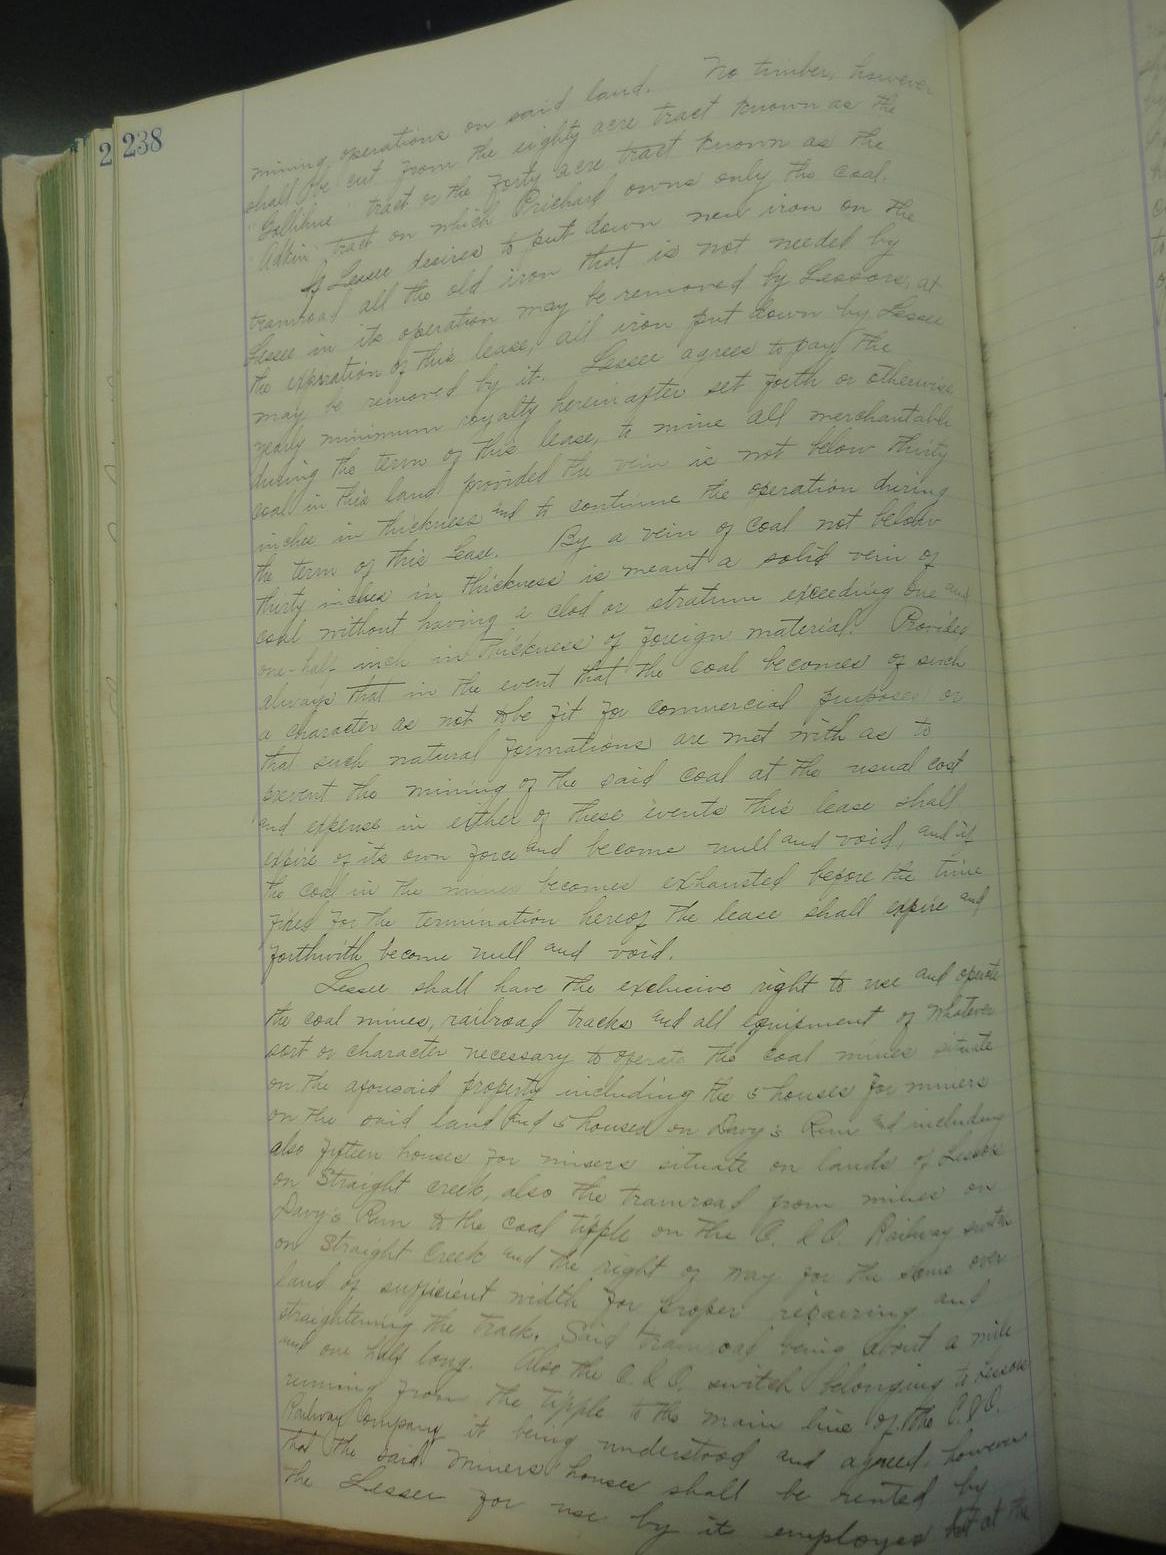 2 238
mining operations on said land. No timber, however
shall be cut from the eighty acre tract known as the
"Gollihue" tract or the forty acre tract known as the
"Adkin" tract on which Prichard owns only the coal.
If Lessee desires to put down new iron on the
tramroad all the old iron that is not needed by
Lessee in its operation may be removed by Lessors, at
the expiration of this lease, all iron put down by Lessee
may be removed by it. Lessee agrees to pay the
yearly minimum royalty hereinafter set forth or otherwise
during the term of this lease, to mine all merchantable
coal in this land provided the vein is not below thirty
inches in thickness and to continue the operation during
the term of this lease. By a vein of coal not below
thirty inches in thickness is meant a solid vein of
coal without having a clod or stratum exceeding one and
one-half inch in thickness of foreign material. Provided
always that in the event that the coal becomes of such
a character as not to be fit for commercial purposes or
that such natural formations are met with as to
prevent the mining of the said coal at the usual cost
and expense in either of these events this lease shall
expire of its own force and become null and void, and if
the coal in the mines becomes exhausted before the time
fixed for the termination hereof the lease shall expire and
forthwith become null and void.
Lessee shall have the exclusive right to use and operate
the coal mines, railroad tracks and all equipment of whatever
sort or character necessary to operate the coal mines situate
on the aforesaid property including the 5 houses for miners
on the said land and 5 houses on Davy's Run and including
also fifteen houses for miners situate on lands of Lessors
on Straight Creek, also the tramroad from mines on
Davy's Run to the coal tipple on the C. & O. Railway switch
on Straight Creek and the right of way for the same over
land of sufficient width for proper repairing and
straightening the track. Said tramroad being about a mile
and one half long. Also the C. & O. switch belonging to lessors
running from the tipple to the main line of the C. & O.
Railway Company it being understood and agreed however
that the said miners houses shall be rented by
the Lessee for use by its employes at the